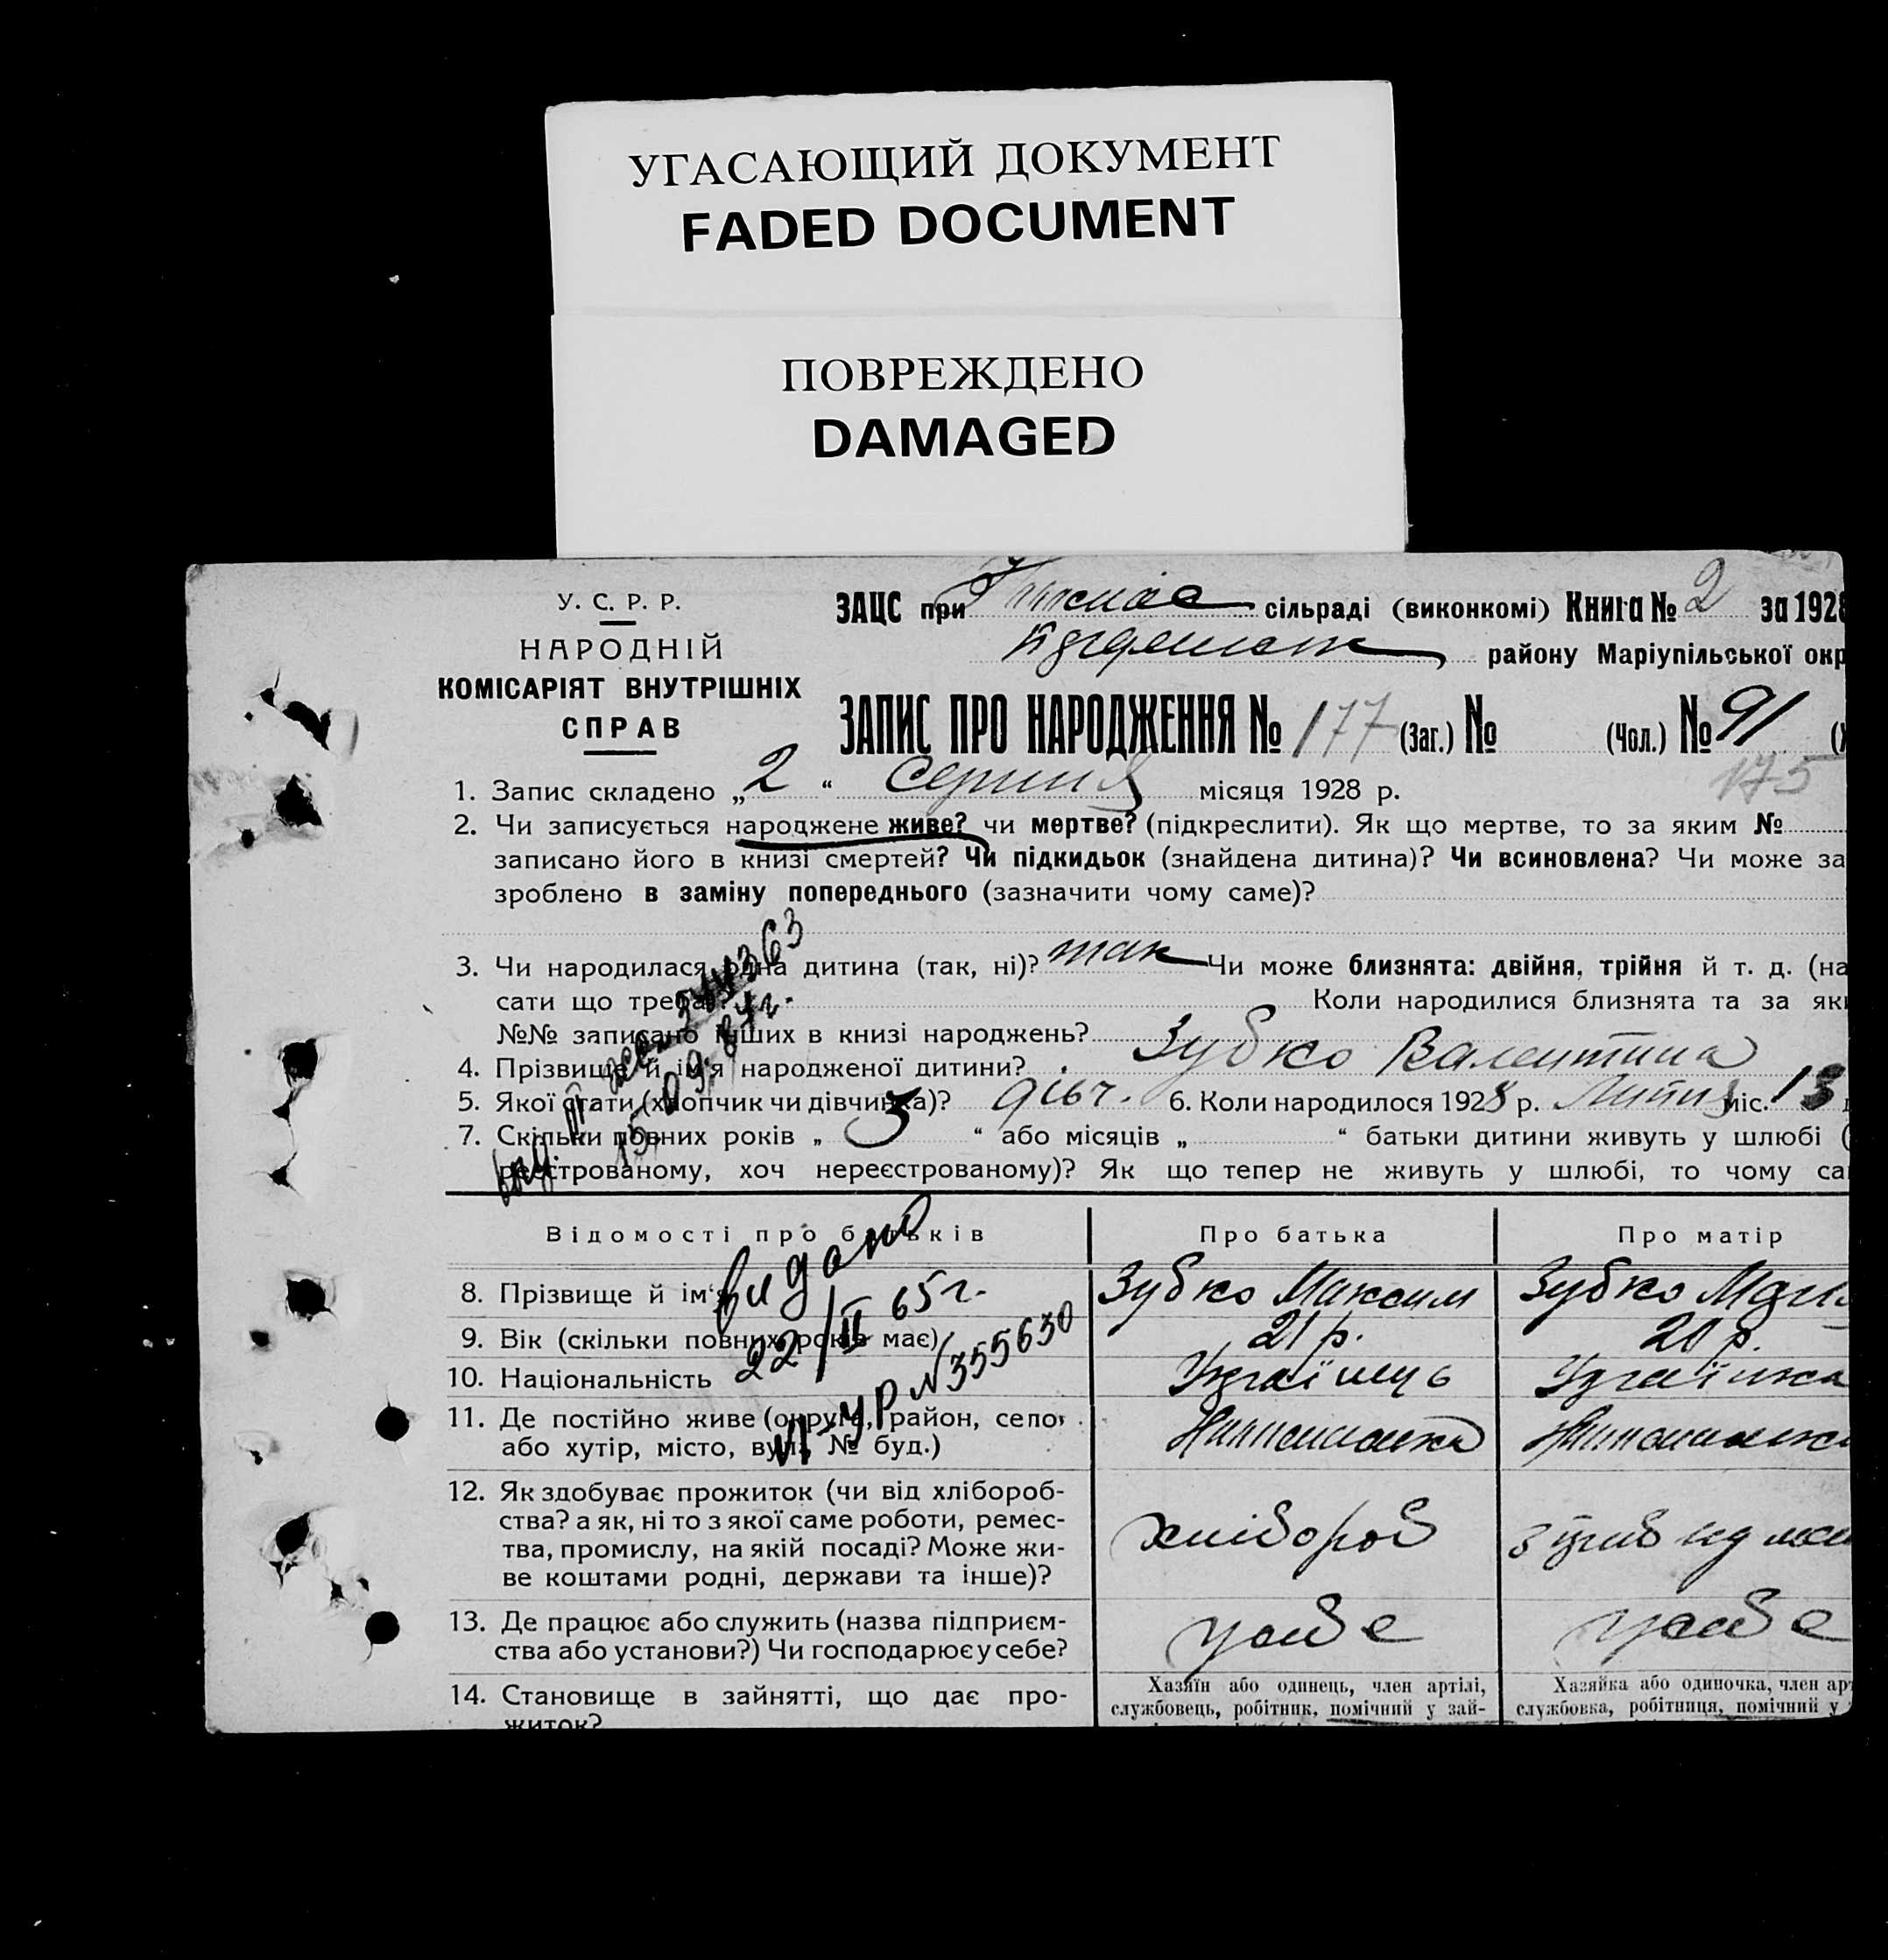 УГАСАЮЩИЙ ДОКУМЕНТ
FADED DOCUMENT
ПОВРЕЖДЕНО
DAMAGED
У. С. Р. Р.
НАРОДНІЙ
КОМІСАРІЯТ ВНУТРІШНІХ
СПРАВ
ЗАЦС при сільраді (виконкомі) Книга № 2 за 1928
району Маріупільської окр
ЗАПИС ПРО НАРОДЖЕННЯ № 177 (Заг.) № (Чол.) № 91
175
1. Запис складено „2“ Серпня місяця 1928 р.
2. Чи записується народжене живе? чи мертве? (підкреслити). Як що мертве, то за яким №
записано його в книзі смертей? Чи підкидьок (знайдена дитина)? Чи всиновлена? Чи може за
зроблено в заміну попереднього (зазначити чому саме)?
3. Чи народилася одна дитина (так, ні)? так Чи може близнята: двійня, трійня й т. д. (на
сати що треба) Коли народилися близнята та за як
№№ записано інших в книзі народжень?
4. Прізвище й ім'я народженої дитини? Зубко Валентина
5. Якої стати (хлопчик чи дівчинка)? дівч. 6. Коли народилося 1928 р. Липня міс. 13
7. Скільки повних років „ 3 “ або місяців „ “ батьки дитини живуть у шлюбі (
реєстрованому, хоч нереєстрованому)? Як що тепер не живуть у шлюбі, то чому са
15.09.84г.
Відомості про батьків Про батька Про матір
видано
22/II 65г.
УР № 355630
8. Прізвище й ім'я Зубко Максим Зубко
9. Вік (скільки повних років має) 21 р. 20 р.
10. Національність Українець Українка
11. Де постійно живе (округа, район, село,
або хутір, місто, вул. № буд.)
12. Як здобуває прожиток (чи від хлібороб-
ства? а як, ні то з якої саме роботи, ремес-
тва, промислу, на якій посаді? Може жи-
ве коштами родні, держави та інше)?
хлібороб
13. Де працює або служить (назва підприєм-
ства або установи?) Чи господарює у себе?
у себе у себе
14. Становище в зайнятті, що дає про-
житок?
Хазяїн або одинець, член артілі,
службовець, робітник, помічний у зай-
Хазяйка або одиночка, член арт
службовка, робітниця, помічний у